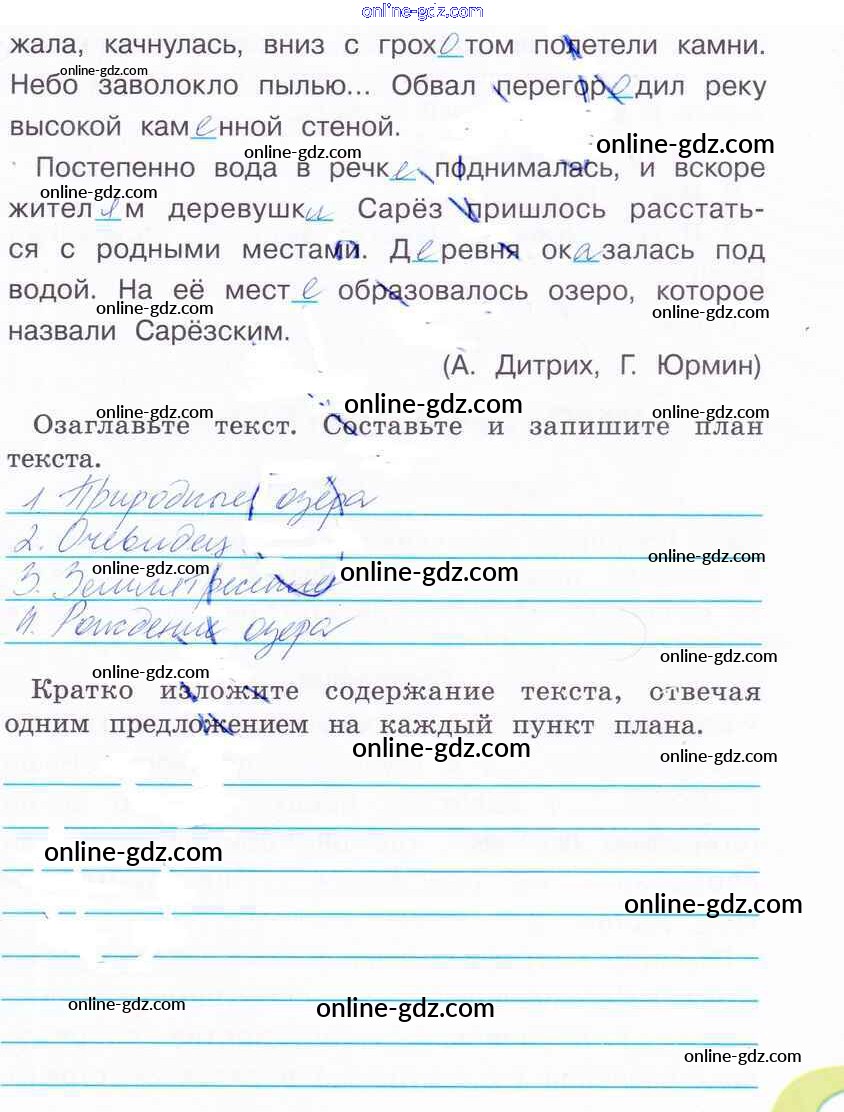 online-gdz.com
жала, качнулась, вниз с грохотом полетели камни.
online-gdz.com
Небо заволокло пылью... Обвал перегородил реку
высокой каменной стеной.
online-gdz.com
online-gdz.com
Постепенно вода в речке поднималась, и вскоре
online-gdz.com
жителям деревушки Сарёз пришлось расстать-
ся с родными местами. Деревня оказалась под
водой. На её месте образовалось озеро, которое
online-gdz.com
online-gdz.com
назвали Сарёзским.
(А. Дитрих, Г. Юрмин)
online-gdz.com
online-gdz.com
online-gdz.com
Озаглавьте текст. Составьте и запишите план
текста.
1 Природные озёра
2. Очевидец.
online-gdz.com
3. Землетресение
online-gdz.com
4. Рождение озера
online-gdz.com
online-gdz.com
Кратко изложите содержание текста, отвечая
одним предложением на каждый пункт плана.
online-gdz.com
online-gdz.com
online-gdz.com
online-gdz.com
online-gdz.com
online-gdz.com
online-gdz.com